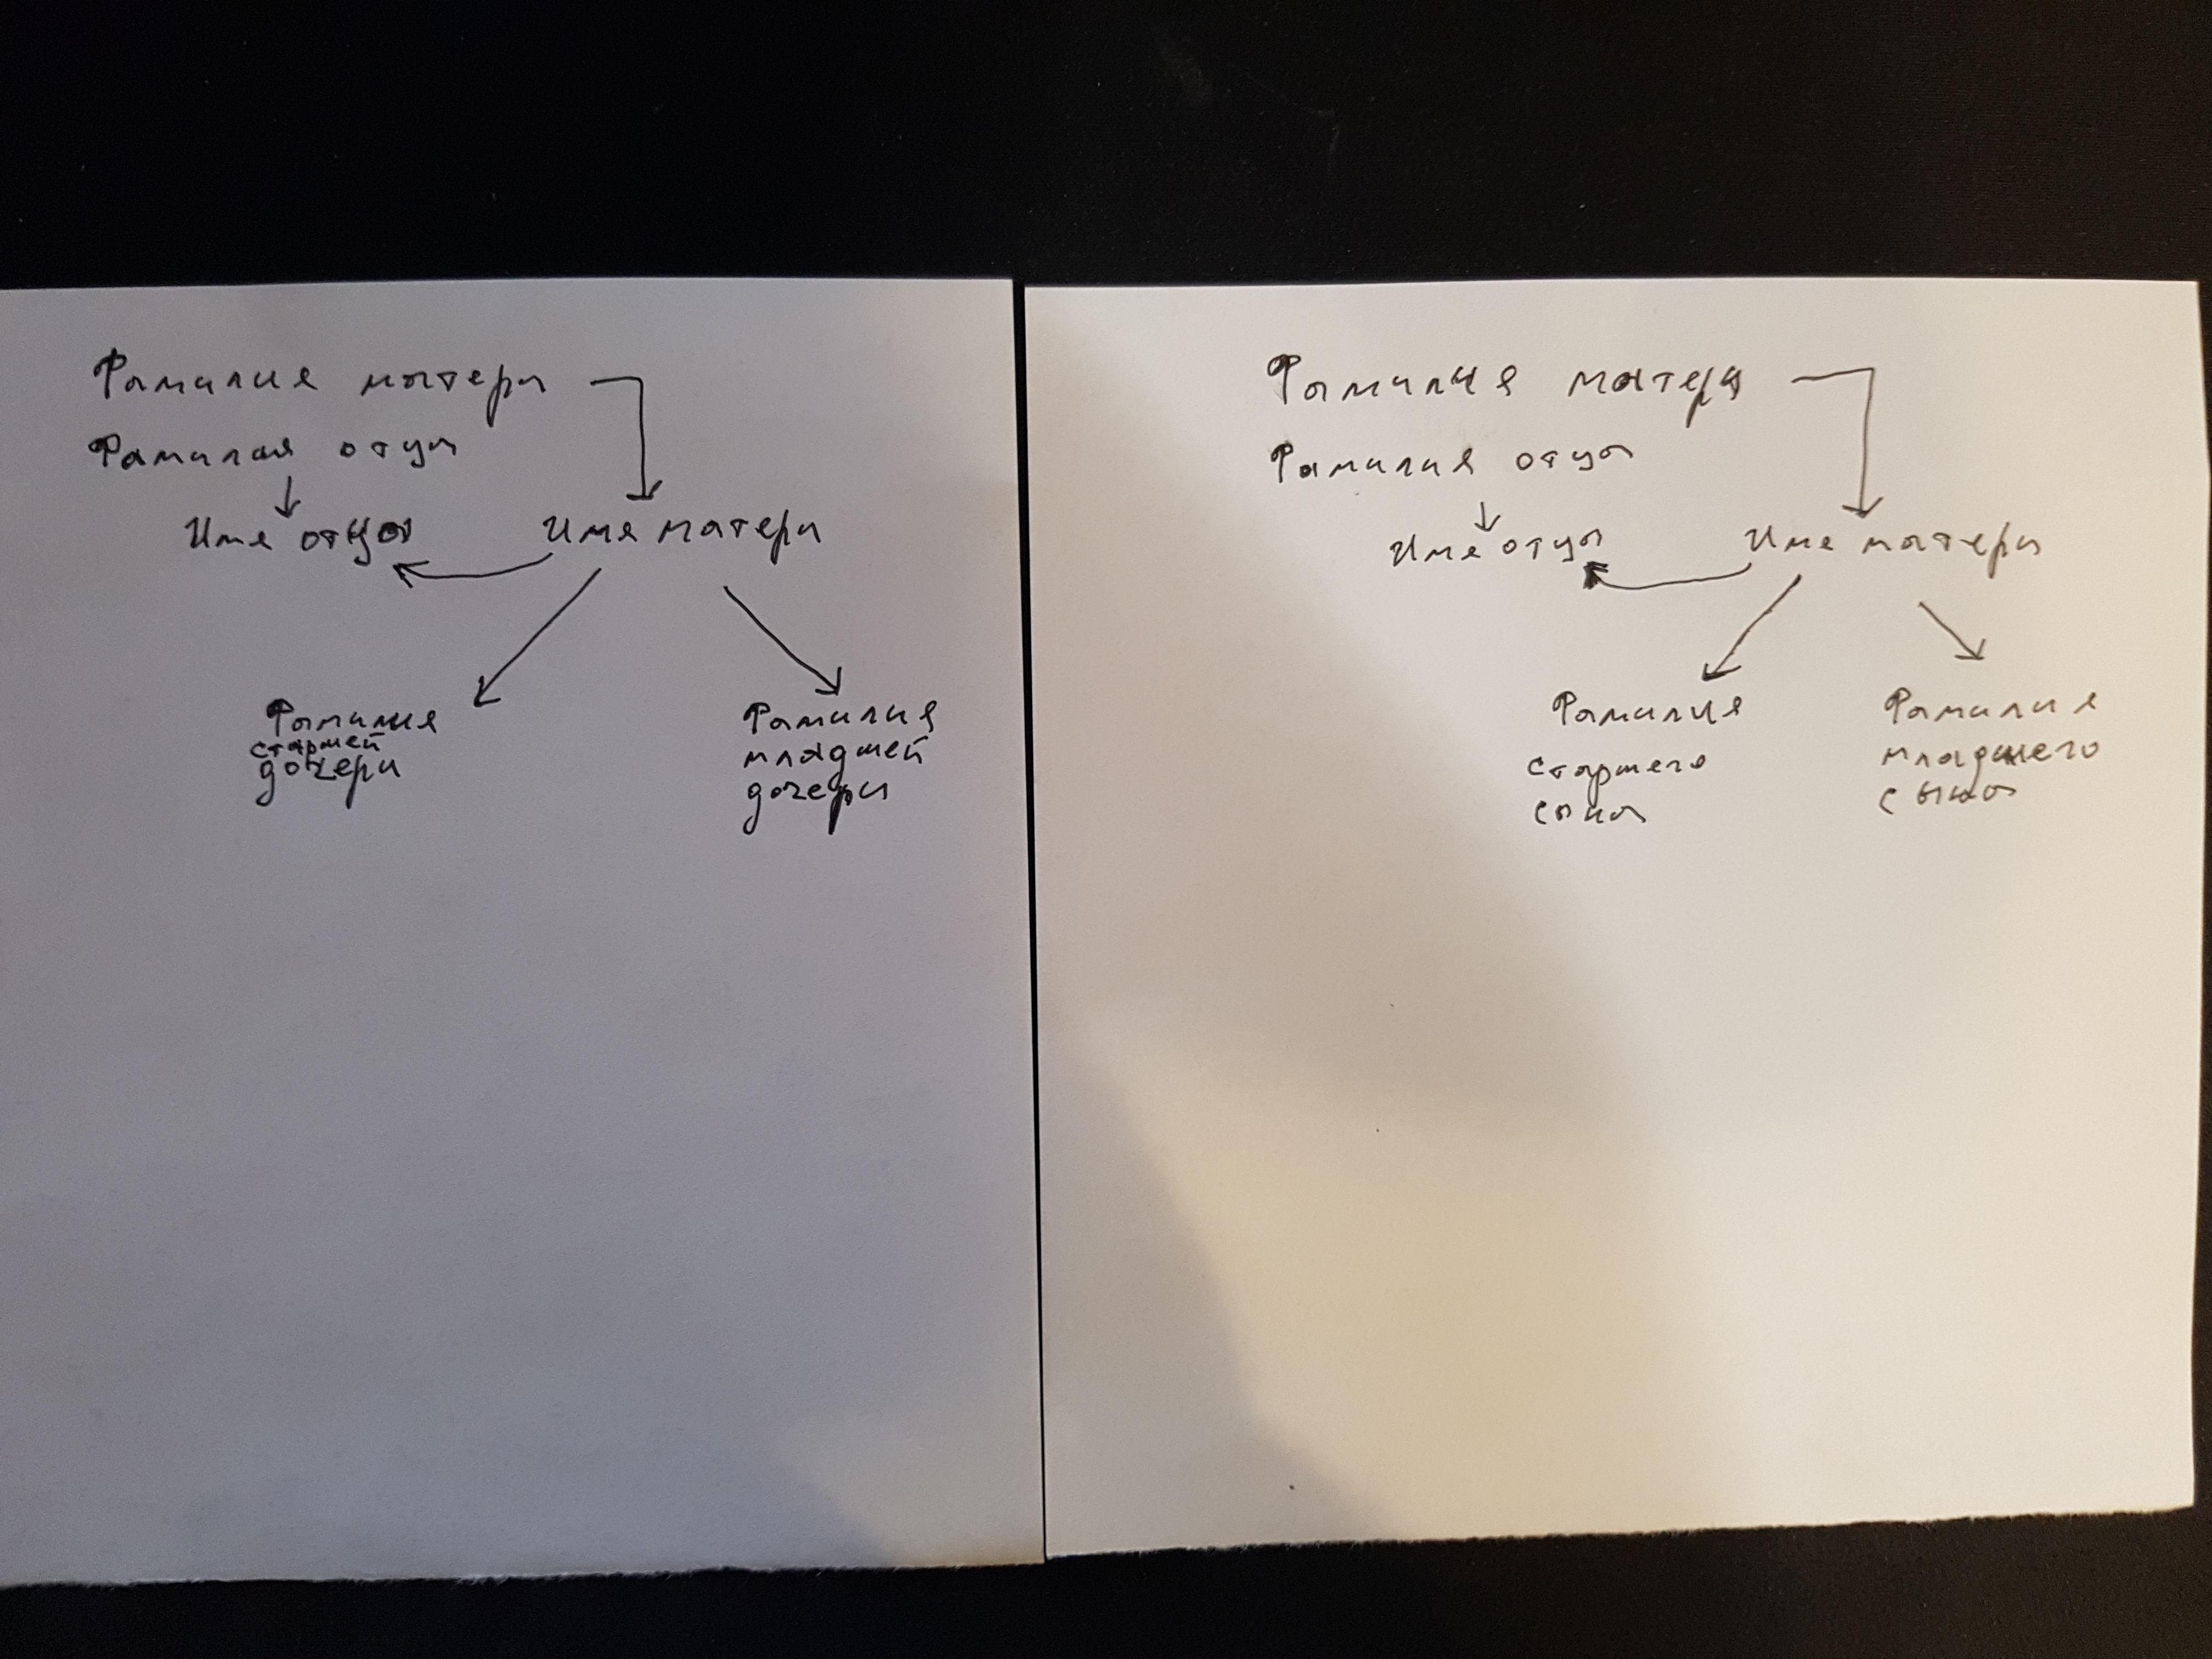 Фамилия матери
Фамилия отца
Имя отца
Имя матери
Фамилия
старшей
дочери
Фамилия
младшей
дочери
Фамилия матери
Фамилия отца
Имя отца
Имя матери
Фамилия
старшего
сына
Фамилия
младшего
сына